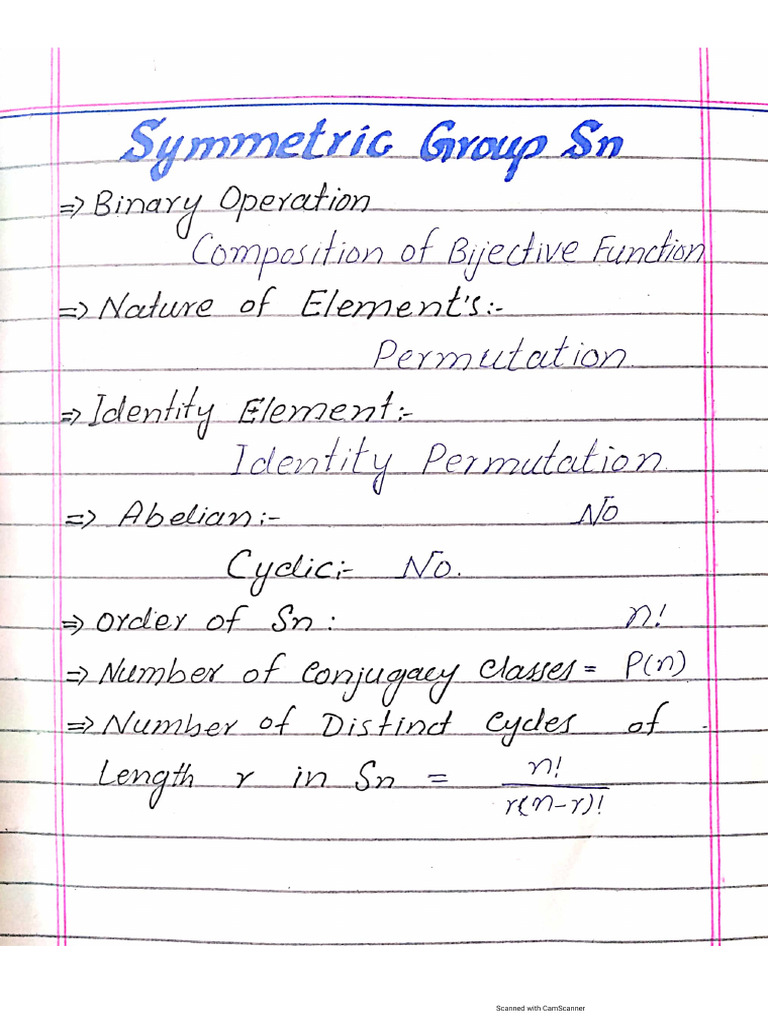 Symmetric Group Sn
⇒ Binary Operation
Composition of Bijective Function
⇒ Nature of Element's:-
Permutation
⇒ Identity Element:-
Identity Permutation
⇒ Abelian:- No
Cyclic:- No.
⇒ order of Sn : n!
⇒ Number of Conjugacy Classes = P(n)
⇒ Number of Distinct Cycles of
Length r in Sn = n! / r(n-r)!
Scanned with CamScanner